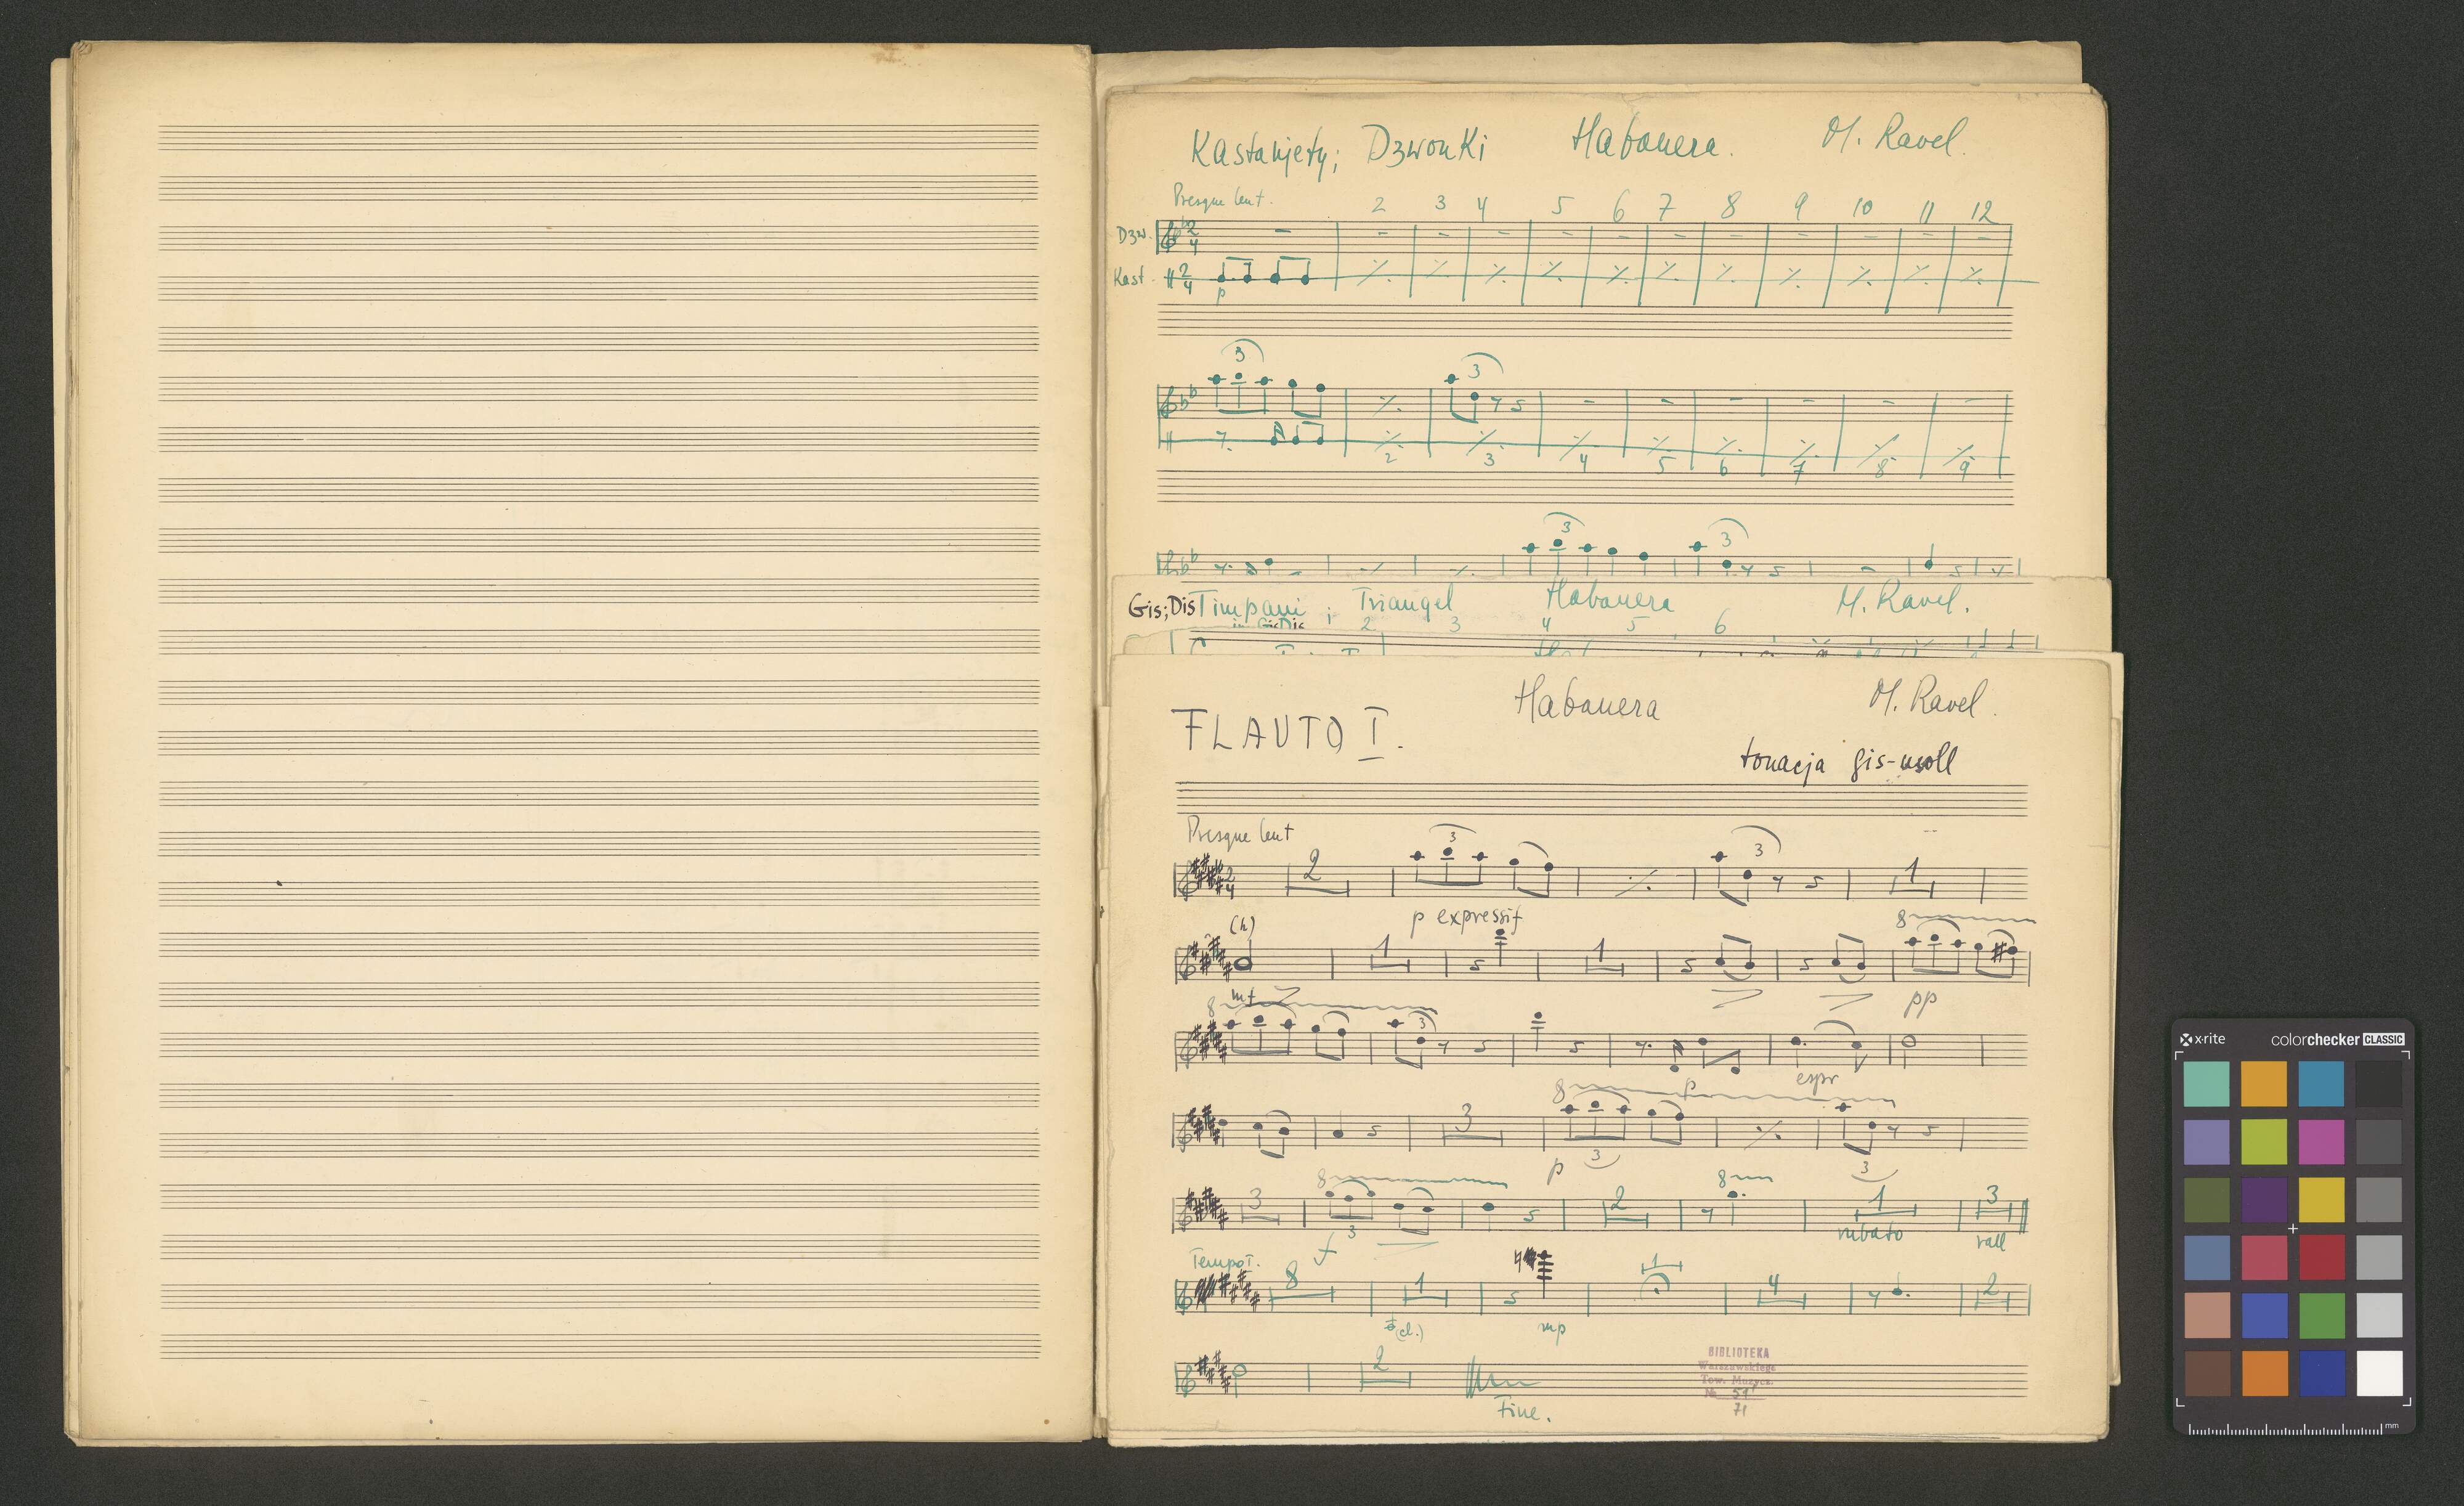 Kastanjety; Dzwonki Habanera. M. Ravel.
Presque lent. 2 3 4 5 6 7 8 9 10 11 12
Dzw. 2 4
Kast. 2 4
p
3 3
2 3 4 5 6 7 8 9
3 3
Gis; Dis Timpani ; Triangel Habanera M. Ravel.
in Gis Dis 1 2 3 4 5 6
Habanera M. Ravel.
FLAUTO I.
tonacja gis-moll
Presque lent
2 4 2 3 3 1
p expressif
1 1 8
mf pp
8 3
p espr
3 8
p 3 3
3 8 2 8 1 3
3 f rubato rall
Tempo I.
8 1 1 4 2
(cl.) mp
2
Fine.
BIBLIOTEKA
Warszawskiego
Tow. Muzycz.
№ 51
71
x·rite colorchecker CLASSIC
mm